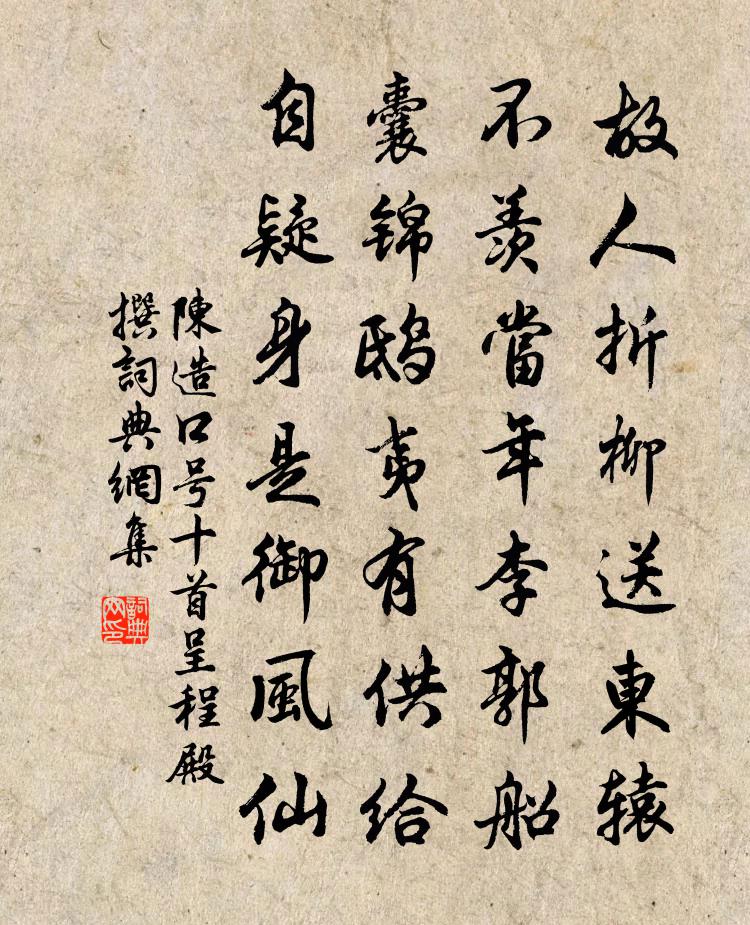 故人折柳送東辕
不羨當年李郭船
囊锦鸱夷有供给
自疑身是御風仙
陳造口号十首呈程殿
撰詞典網集
詞典
网印